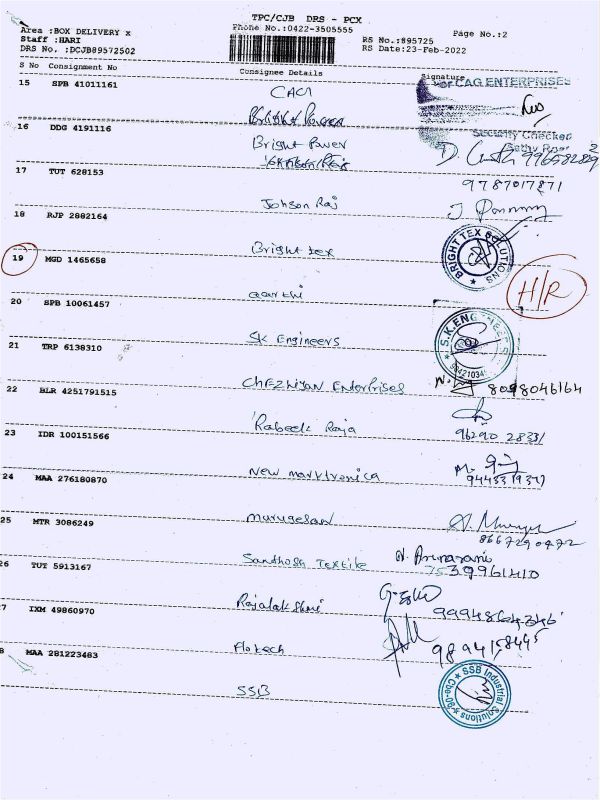 TPC/CJB DRS - PCX
Area :BOX DELIVERY x
Phone No.:0422-3505555
Page No.:2
Staff :HARI
RS No.:895725
DRS No. :DCJB89572502
RS Date:23-Feb-2022
S No Consignment No Consignee Details Signature
15 SPB 41011161
For CAG ENTERPRISES
16 DDG 4191116
Security Checked
Bright Power
17 TUT 628153
9787017871
Johson Raj
18 RJP 2882164
Bright tex
BRIGHT TEX SOLUTIONS
19 MGD 1465658
H/R
aarthi
20 SPB 10061457
SK Engineers
S.K.ENGINEERS
21 TRP 6138310
CHEZHIYAN Enterprises
8098046164
22 BLR 4251791515
Rabeek Raja
96290 28331
23 IDR 100151566
New marktronica
24 MAA 276180870
murugesan
25 MTR 3086249
8667290472
Santhosh Textile
7539961410
26 TUT 5913167
Rajalakshmi
7 IXM 49860970
Flotech
8 MAA 281223483
SSB
SSB Industrial Solutions